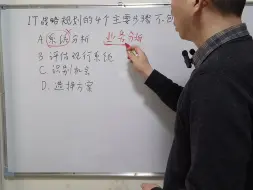 IT战略规划的4个主要步骤不包
A. 系统分析 业务分析
B. 评估现行系统
C. 识别机会
D. 选择方案